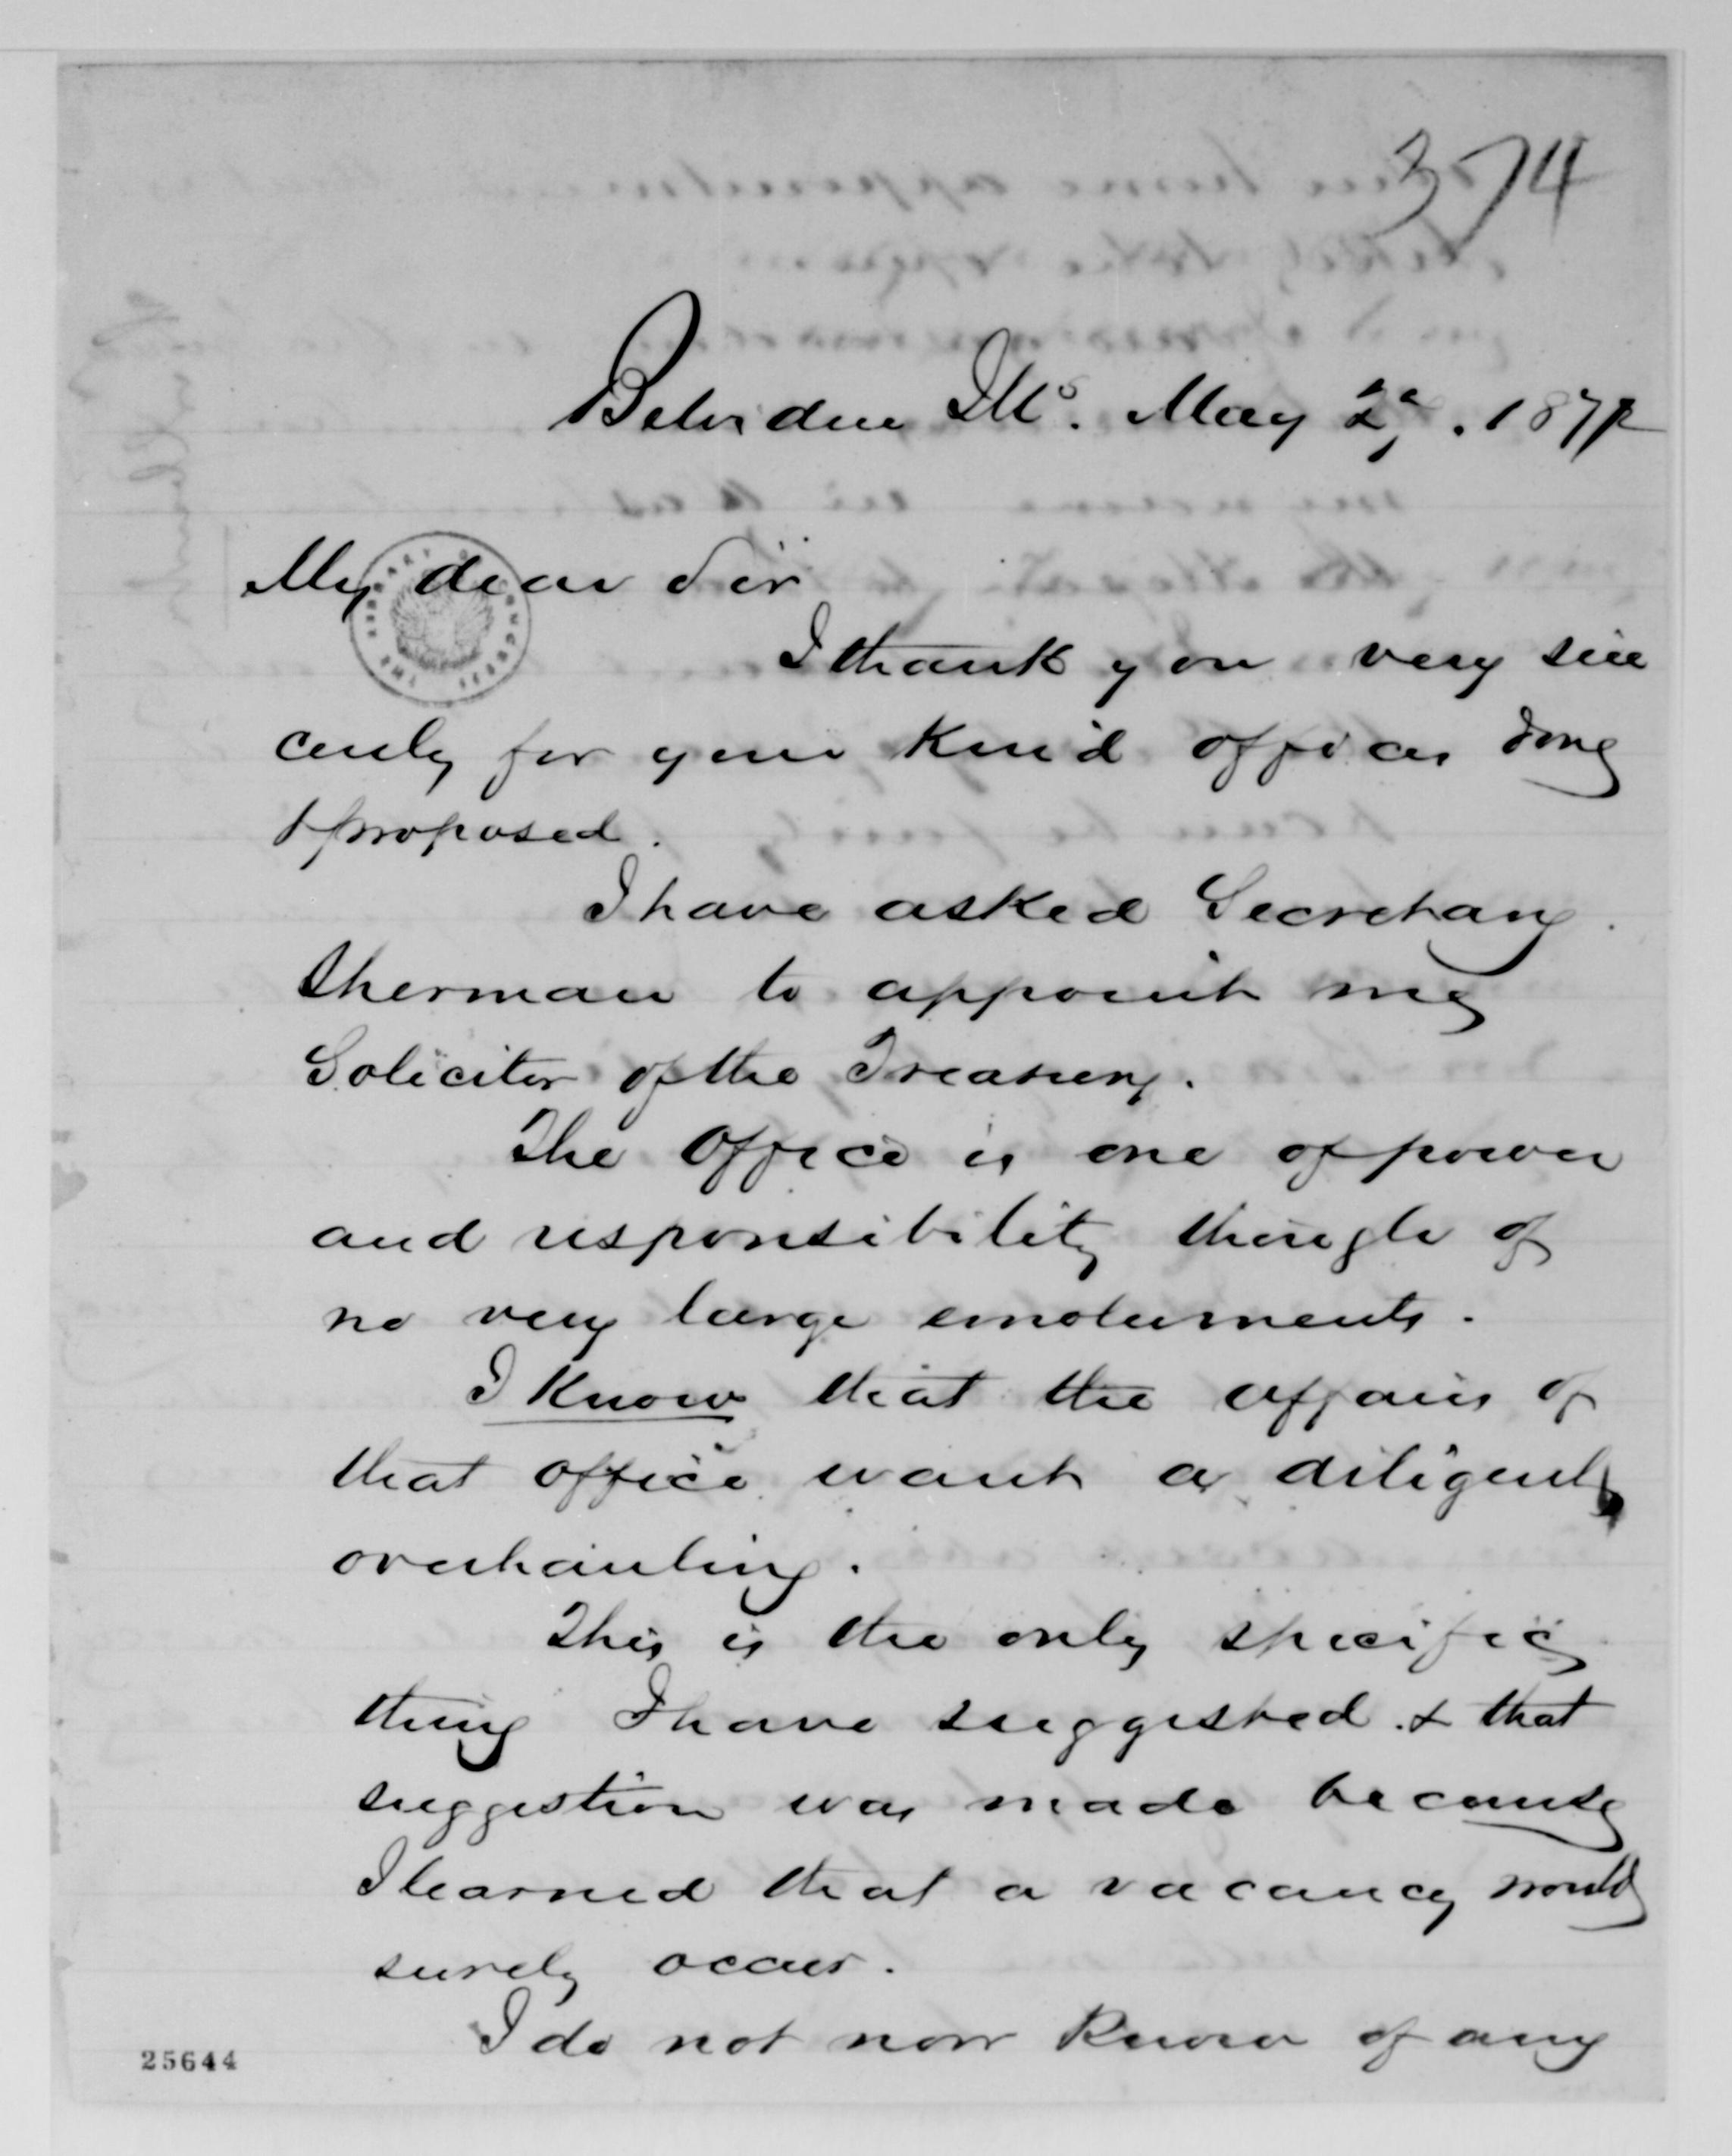 374
Belvidere Ills. May 2d. 1877
My dear Sir
I thank you very sin
cerely for your kind offices done
& proposed.
I have asked Secretary
Sherman to appoint me
Solicitor of the Treasury.
The Office is one of power
and responsibility though of
no very large emoluments.
I Know that the affairs of
that office want a diligent
overhauling.
This is the only specific
thing I have suggested & that
suggestion was made because
I learned that a vacancy would
surely occur.
I do not now know of any
25644